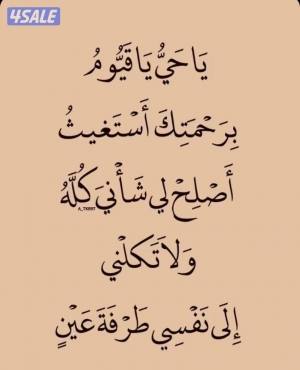 4SALE
يَا حَيُّ يَا قَيُّومُ
بِرَحْمَتِكَ أَسْتَغِيثُ
أَصْلِحْ لِي شَأْنِي كُلَّهُ
وَلَا تَكِلْنِي
إِلَى نَفْسِي طَرْفَةَ عَيْنٍ